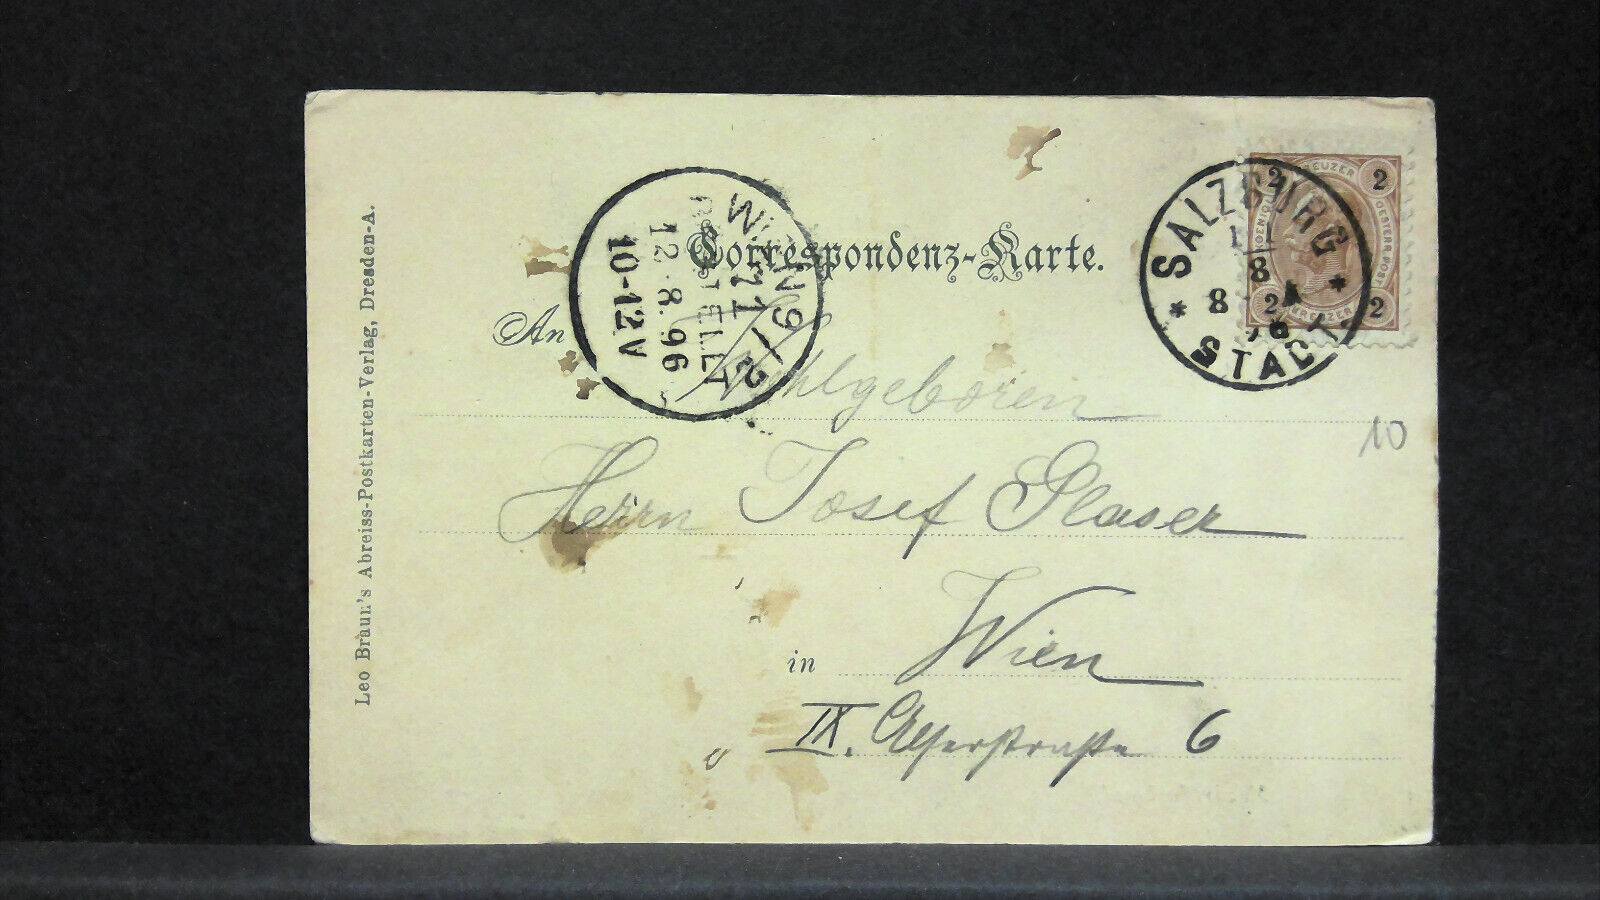 Correspondenz-Karte.
An
Wohlgeboren
Herrn Josef Glaser
in Wien
IX. Alserstraße 6
10
Leo Braun's Abreiss-Postkarten-Verlag, Dresden-A.
WIEN 9/2
11
BESTELLT
12.8.96
10-12V
* SALZBURG *
8 8
STADT
2 2
KREUZER
2 2
KREUZER